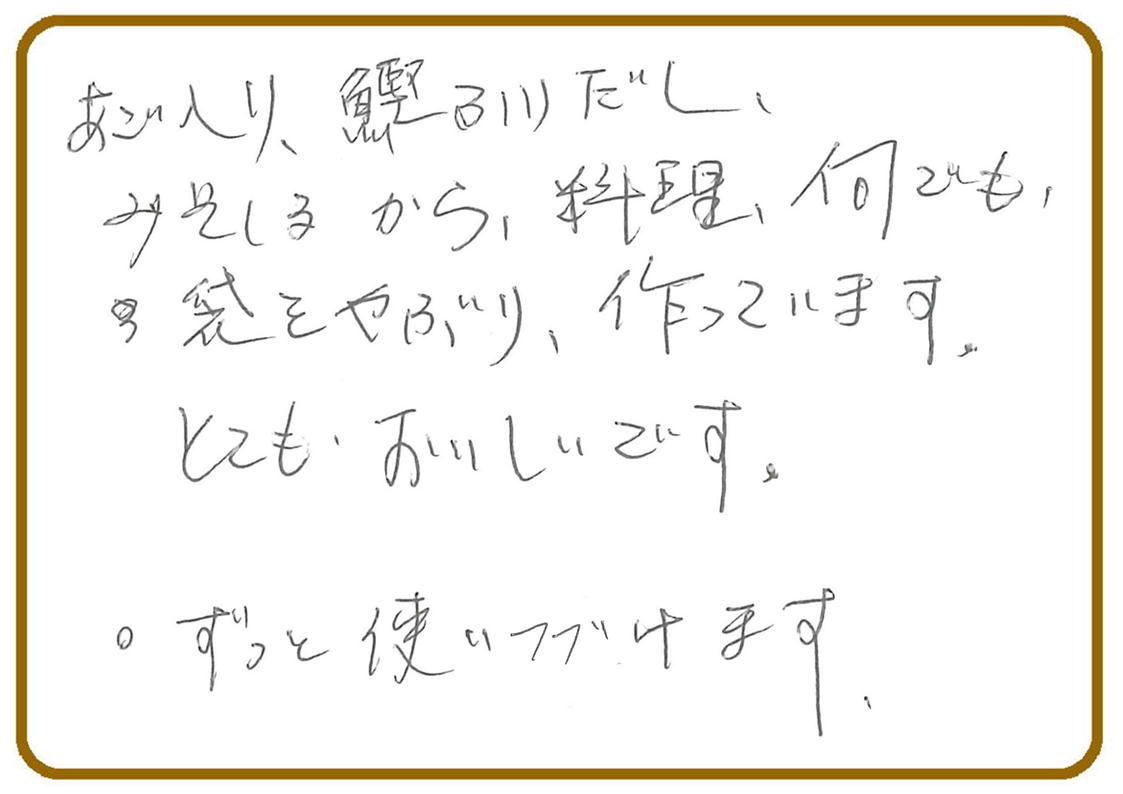 あご入り、鰹ふりだし、
みそしるから、料理、何でも、
。袋をやぶり、作っています。
とても おいしいです。
。ずっと使いつづけます。